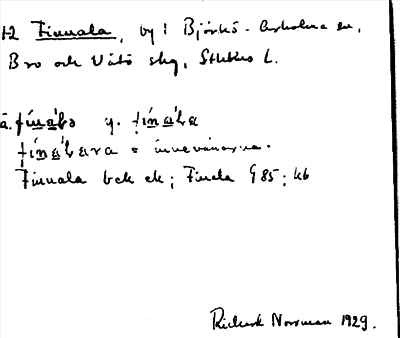 12 Finnala, by i Björkö-Arholma sn,
Bro och Vätö skg, Sthlms L.
ä. fìnàla y. fìnàla
fìnàlara = innevånarna.
Finnala bek ek; Finala G 85; kb
Rickard Norrman 1929.